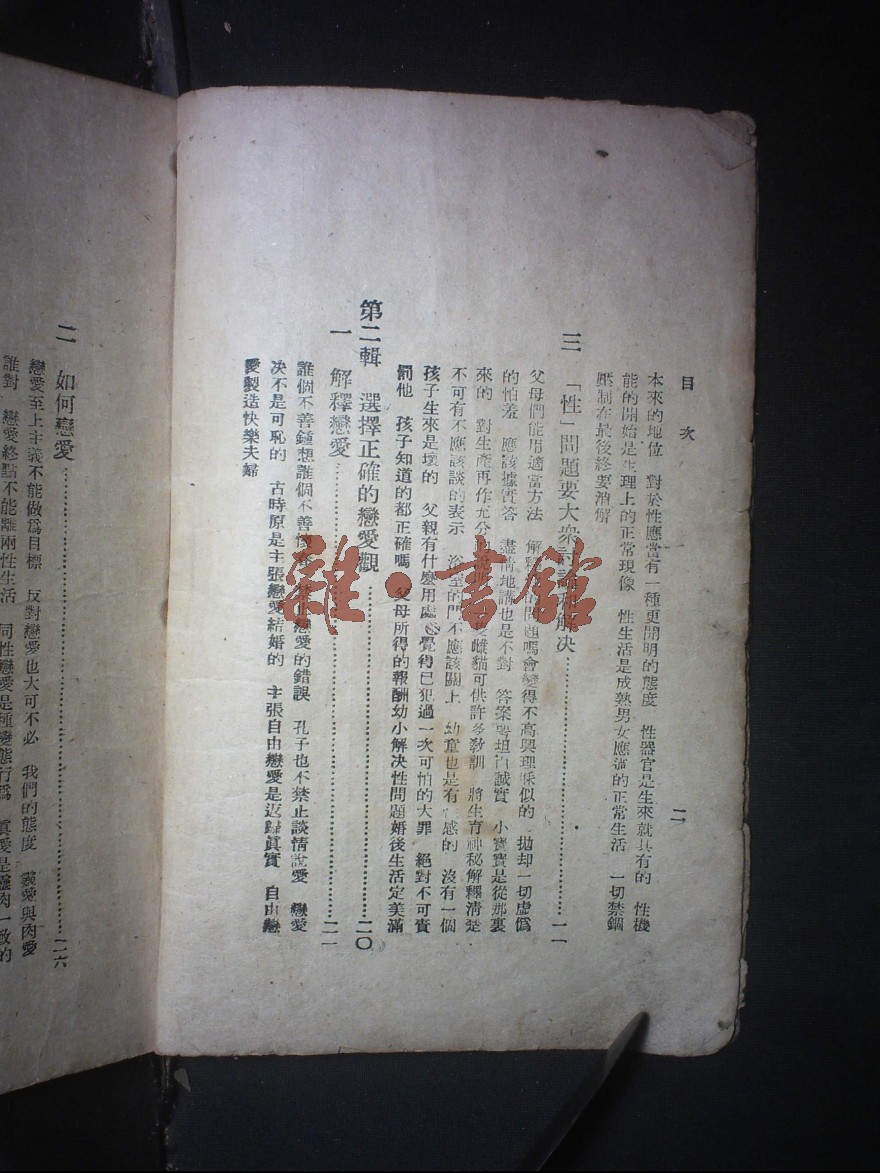 目次
二
本來的地位 對於性應當有一種更開明的態度 性器官是生來就具有的 性機
能的開始是生理上的正常現像 性生活是成熟男女應有的正常生活 一切禁錮
壓制在最後終要消解
三 「性」問題要大衆討論和解决……一一
父母們能用適當方法 解釋 問題嗎會變得不高興理睬似的 拋却一切虛僞
的怕羞 應該據實答 盡情地講也是不對 答案要坦白誠實 小寶寶是從那裏
來的 對生產再作充分的說明 隻雌貓可供許多敎訓 將生育神秘解釋清楚
不可有不應該談的表示 浴室的門不應該關上 幼童也是有 感的 沒有一個
孩子生來是壞的 父親有什麼用處 覺得已犯過一次可怕的大罪 絕對不可責
罰他 孩子知道的都正確嗎 父母所得的報酬幼小解决性問題婚後生活定美滿
第二輯 選擇正確的戀愛觀……二〇
一 解釋戀愛……二一
誰個不善鍾想誰個不善懷 禁止戀愛的錯誤 孔子也不禁止談情說愛 戀愛
决不是可恥的 古時原是主張戀愛結婚的 主張自由戀愛是返歸眞實 自由戀
愛製造快樂夫婦
二 如何戀愛……二六
戀愛至上主義不能做爲目標 反對戀愛也大可不必 我們的態度 靈愛與肉愛
誰對 戀愛終點不能離兩性生活 同性戀愛是種變態行爲 眞愛是靈肉一致的
雜·書館